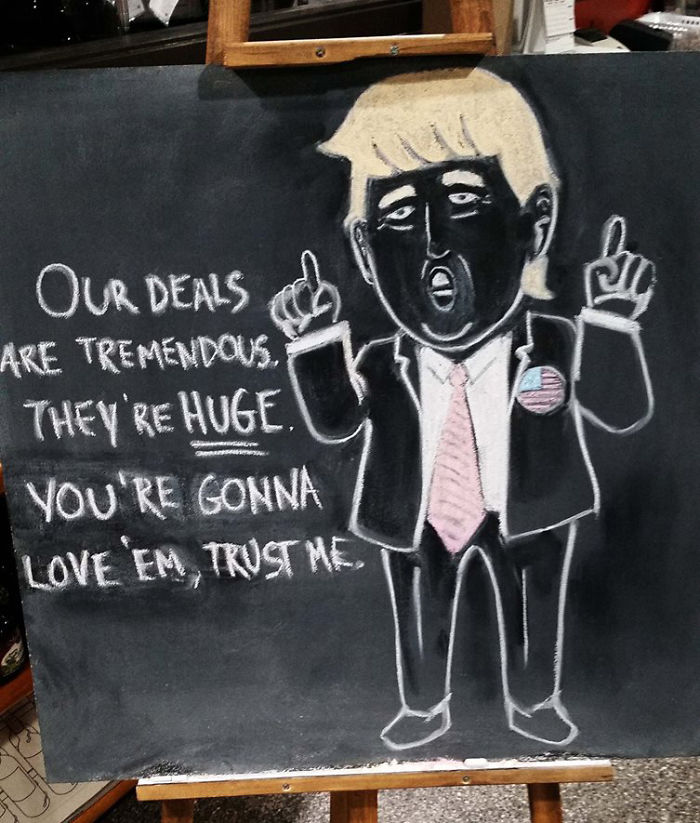 OUR DEALS
ARE TREMENDOUS.
THEY'RE HUGE.
YOU'RE GONNA
LOVE 'EM, TRUST ME.